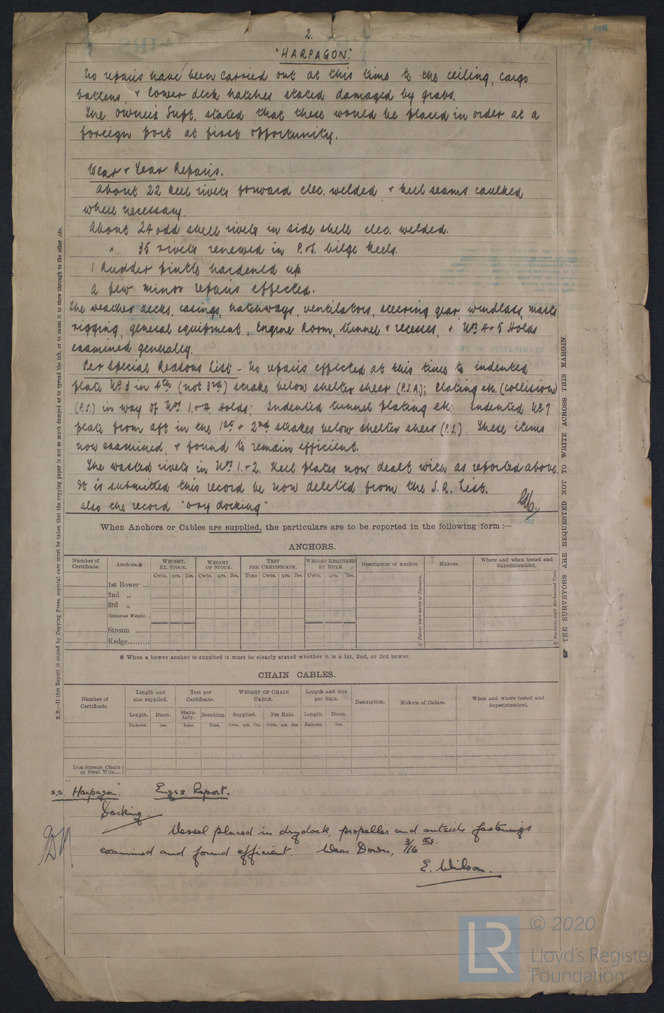 2.
"HARPAGON".
No repairs have been carried out at this time to the ceiling, cargo
battens, & lower deck hatches stated damaged by grabs.
The Owner's Supt. stated that these would be placed in order at a
foreign port at first opportunity.
Wear & Tear Repairs.
About 22 keel rivets forward elec. welded & keel seams caulked
where necessary.
About 24 odd shell rivets in side shell elec. welded.
" 35 rivets renewed in P.&S. bilge keels.
1 Rudder pintle hardened up.
A few minor repairs effected.
The weather decks, casings, hatchways, ventilators, steering gear, windlass, masts
rigging, general equipment, Engine Room, tunnel & recesses, & Nos 4 & 5 Holds
examined generally.
Per Special Reasons List - No repairs effected at this time to indented
plate No 3 in 4th (not 3rd) strake below shelter sheer (P.S.A); Plating etc. (collision)
(P.S.) in way of Nos 1 & 2 Holds; Indented tunnel plating etc. Indented No 7
plate from aft in the 1st & 2nd strakes below shelter sheer (P.S.). These items
now examined, & found to remain efficient.
The wasted rivets in Nos 1 & 2 keel plates now dealt with as reported above.
It is submitted this record be now deleted from the S.R. List.
also the record "dry docking"
When Anchors or Cables are supplied, the particulars are to be reported in the following form :—
ANCHORS.
Number of Certificate.
Anchors.
WEIGHT, EX. STOCK.
WEIGHT OF STOCK.
TEST PER CERTIFICATE.
WEIGHT REQUIRED BY RULE.
Description of Anchor
Makers.
Where and when tested and Superintendent.
Cwts. qrs. lbs.
Cwts. qrs. lbs.
Tons cwts. qrs. lbs.
Cwts. qrs. lbs.
1st Bower ...
2nd „
3rd „
Collective Weight.
Stream ......
Kedge.........
When a bower anchor is supplied it must be clearly stated whether it is a 1st, 2nd, or 3rd bower.
CHAIN CABLES.
Number of Certificate.
Length and size supplied.
Test per Certificate.
WEIGHT OF CHAIN CABLE.
Length and size per Rule.
Description.
Makers of Cables.
When and where tested and Superintendent.
Length. Diam. Statutory. Breaking. Supplied. Per Rule. Length. Diam.
Iron Stream Chain or Steel Wire...
s.s. Harpagon. Engrs. Report.
Docking
Vessel placed in drydock, propeller and outside fastenings
examined and found efficient. Wear Down, 3/16 ins.
E. Wilson.
THE SURVEYORS ARE REQUESTED NOT TO WRITE ACROSS THIS MARGIN.
© 2020
LR
Lloyd's Register
Foundation